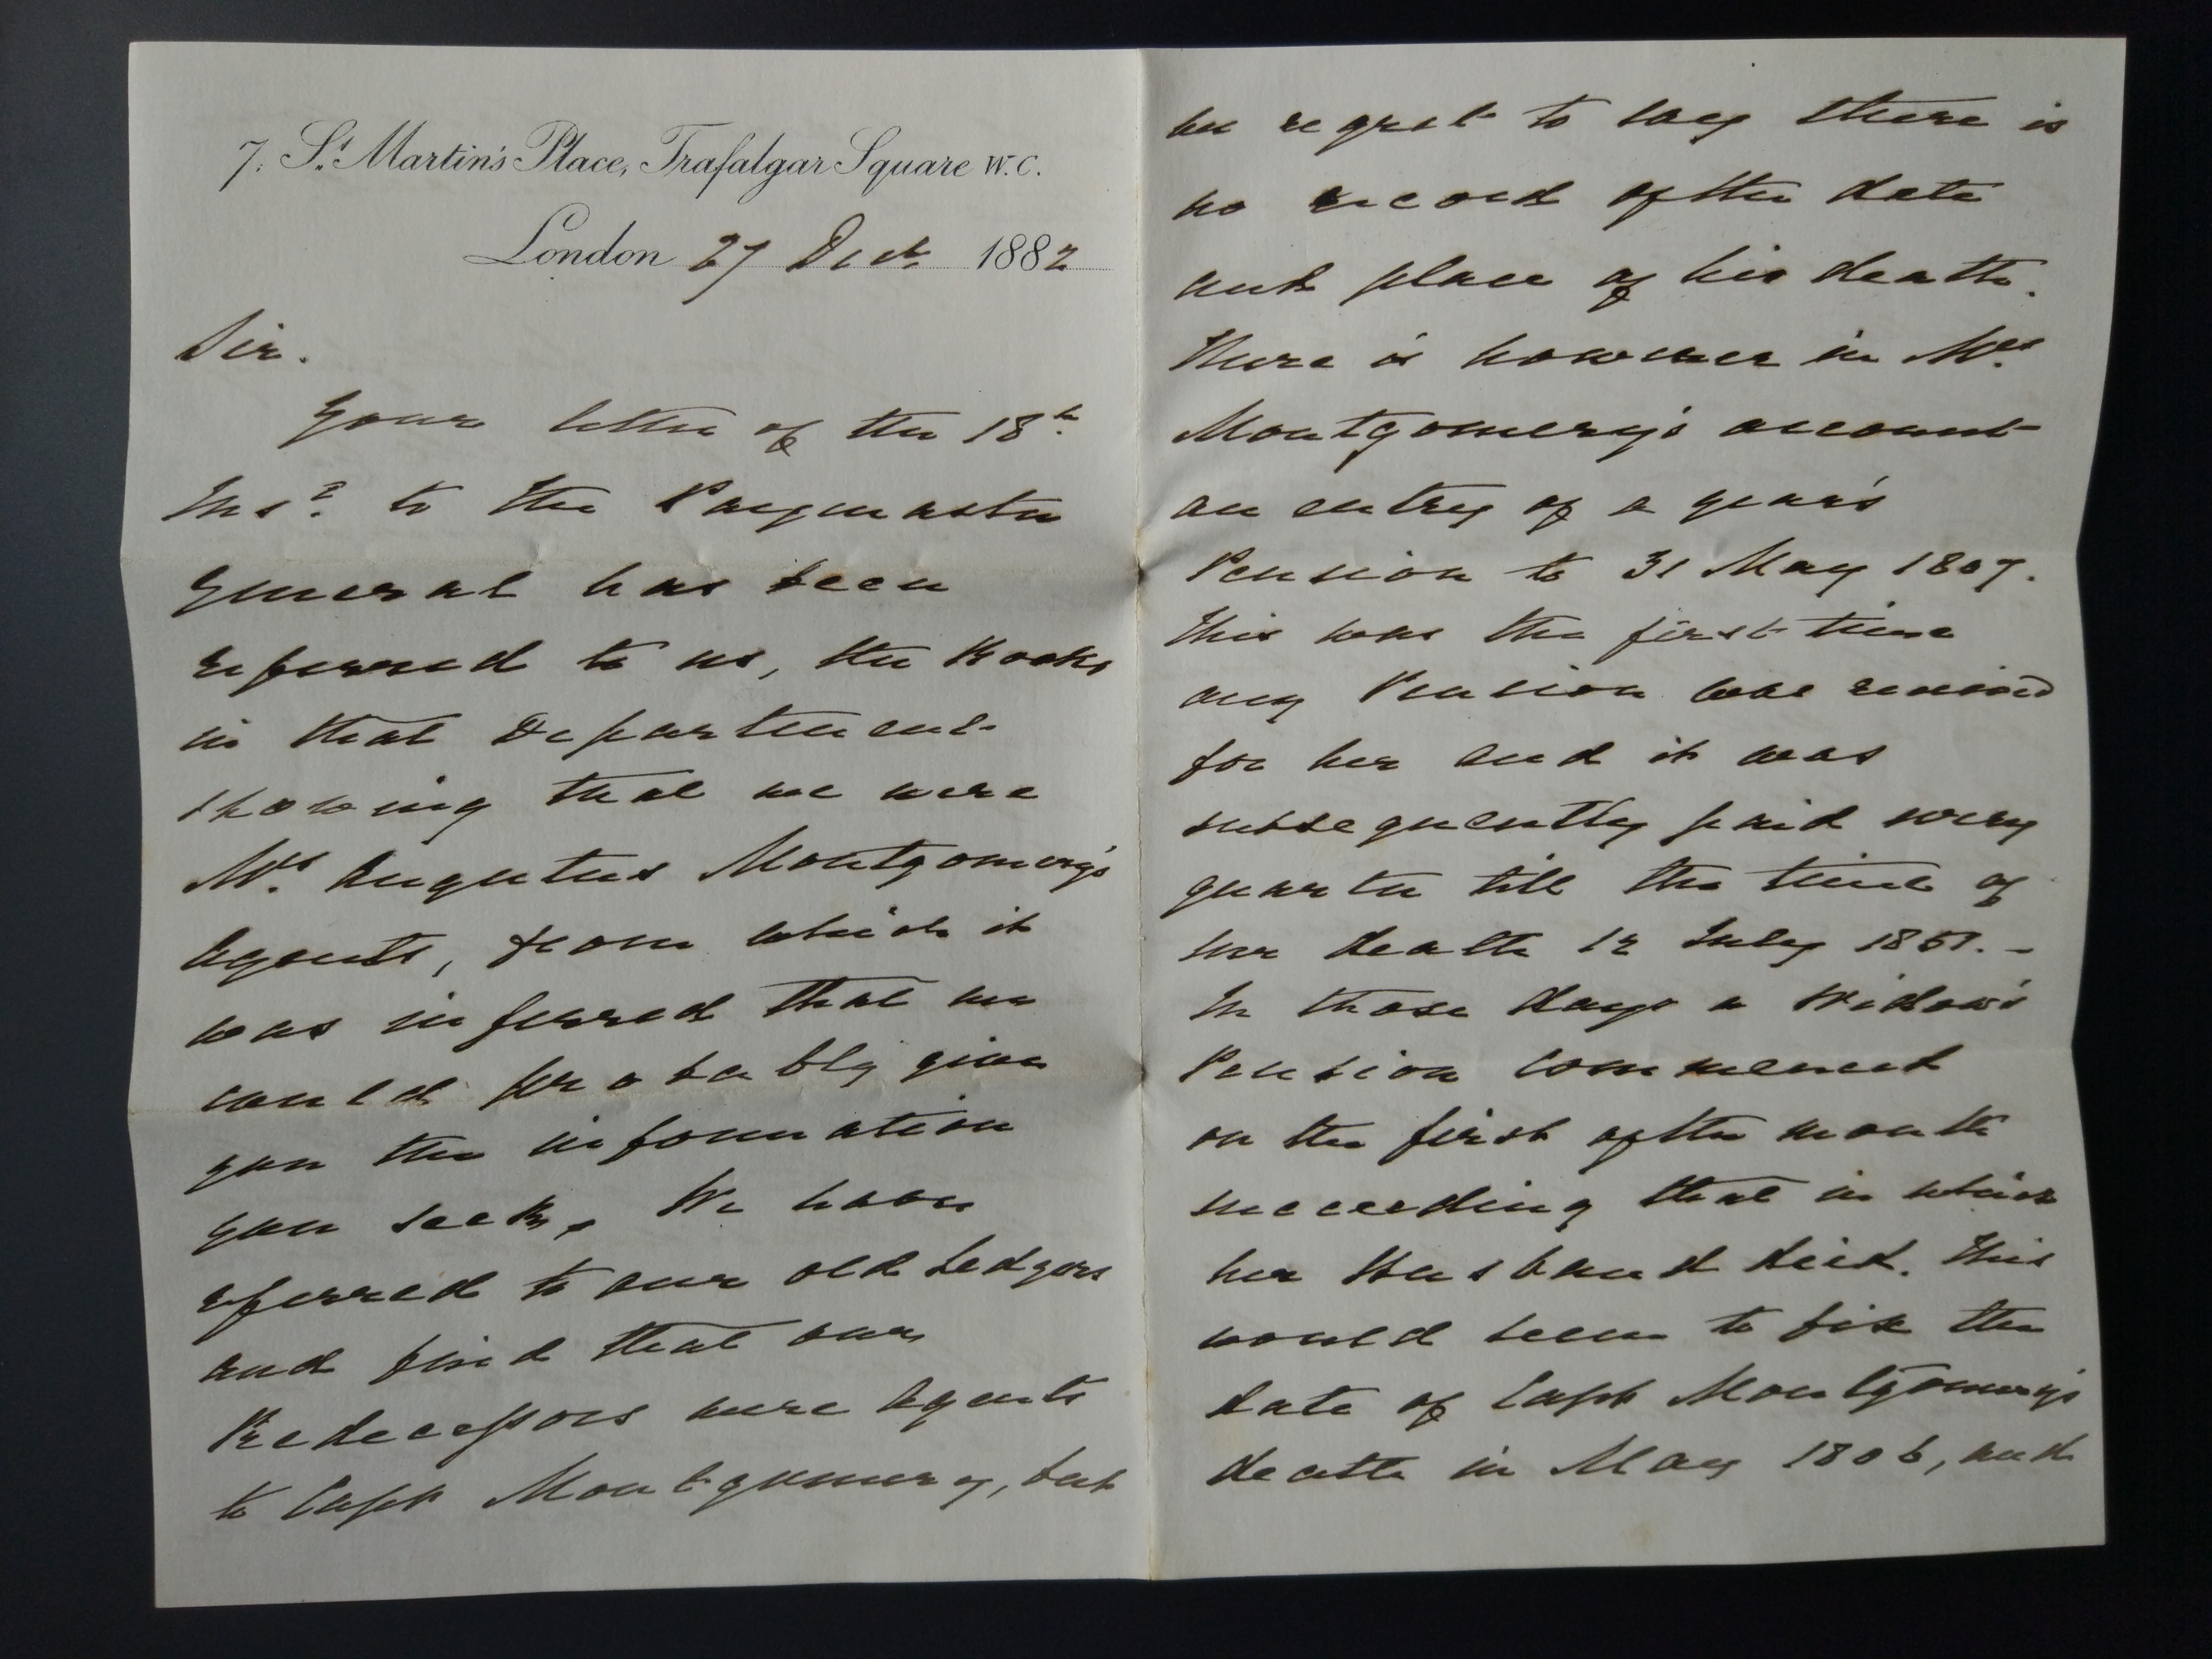 7, St. Martin's Place, Trafalgar Square W.C.
London 27 Decr. 1882
Sir.
Your letter of the 18th.
Inst. to the Paymaster
General has been
referred to us, the Books
in that Department
showing that we were
Mrs. Augustus Montgomery's
Agents, from which it
was inferred that we
could probably give
you the information
you seek. We have
referred to our old Ledgers
and find that our
Predecessors were Agents
to Capt Montgomery, but
we regret to say there is
no record of the date
and place of his death.
There is however in Mrs.
Montgomery's account
an entry of a year's
Pension to 31 May 1807.
This was the first time
any Pension was received
for her and it was
subsequently paid every
quarter till the time of
her death 12 July 1851. -
In those days a Widow's
Pension commenced
on the first of the month
succeeding that in which
her Husband died. This
would seem to fix the
date of Capt Montgomery's
death in May 1806, and